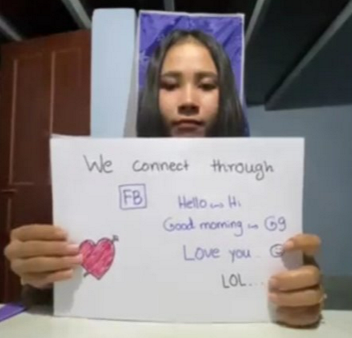 We connect through
FB
Hello Hi
Good morning G9
Love you
LOL...